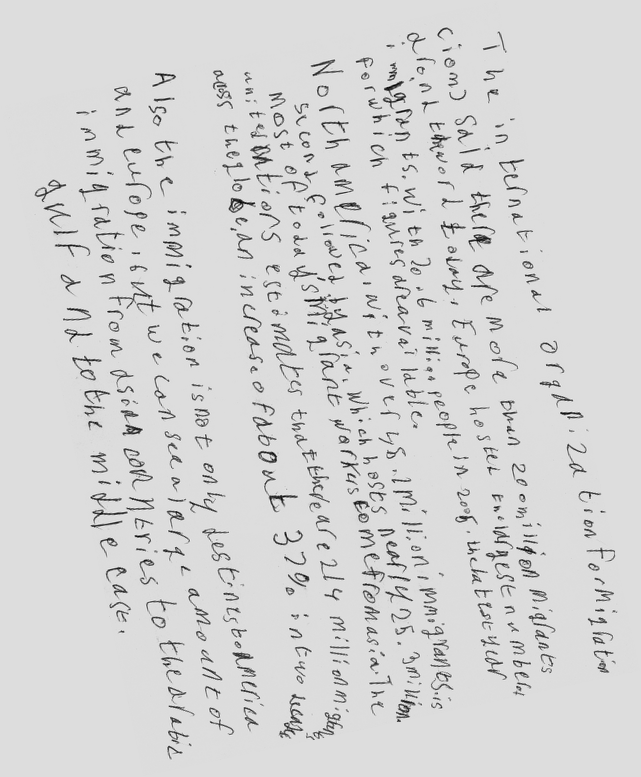 The international organization for Migration
(iom) said there are more than 200 million Migrants
around the word today. Europe hosted the largest number of
immigrants, with 70.6 million people in 2005, the latest year
for which figures are available.
North america, with over 45.1 million immigrants is
second, followed by asia, which hosts nearly 25.3 million.
Most of today's Migrant workers come from asia. The
unites nations estimates that there are 214 million migrants
across the globe, an increase of about 37% in two decades
Also the immigration is not only destined to america
and europe, but we can see a large amount of
immigration from asian countries to the arabic
gulf and to the middle east.